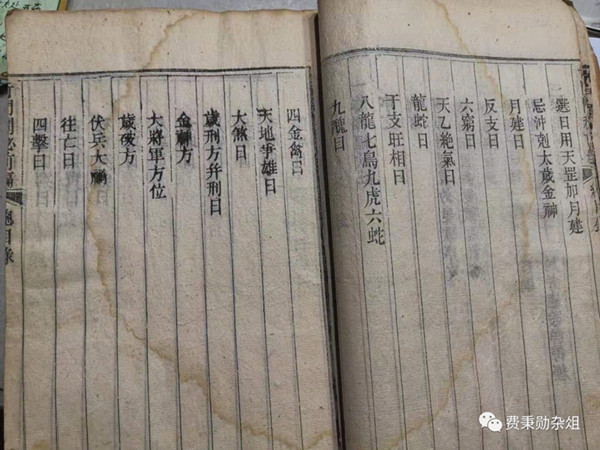 選日用天罡加月建
忌沖剋太歲金神
月建日
反支日
六窮日
天乙絶氣日
龍蛇日
干支旺相日
八龍七鳥九虎六蛇
九龍日
四金禽日
天地爭雄日
大煞日
歲刑方幷刑日
金神方
大將軍方位
歲破方
伏兵大禍
往亡日
四擊日
總目錄
费秉勋杂俎